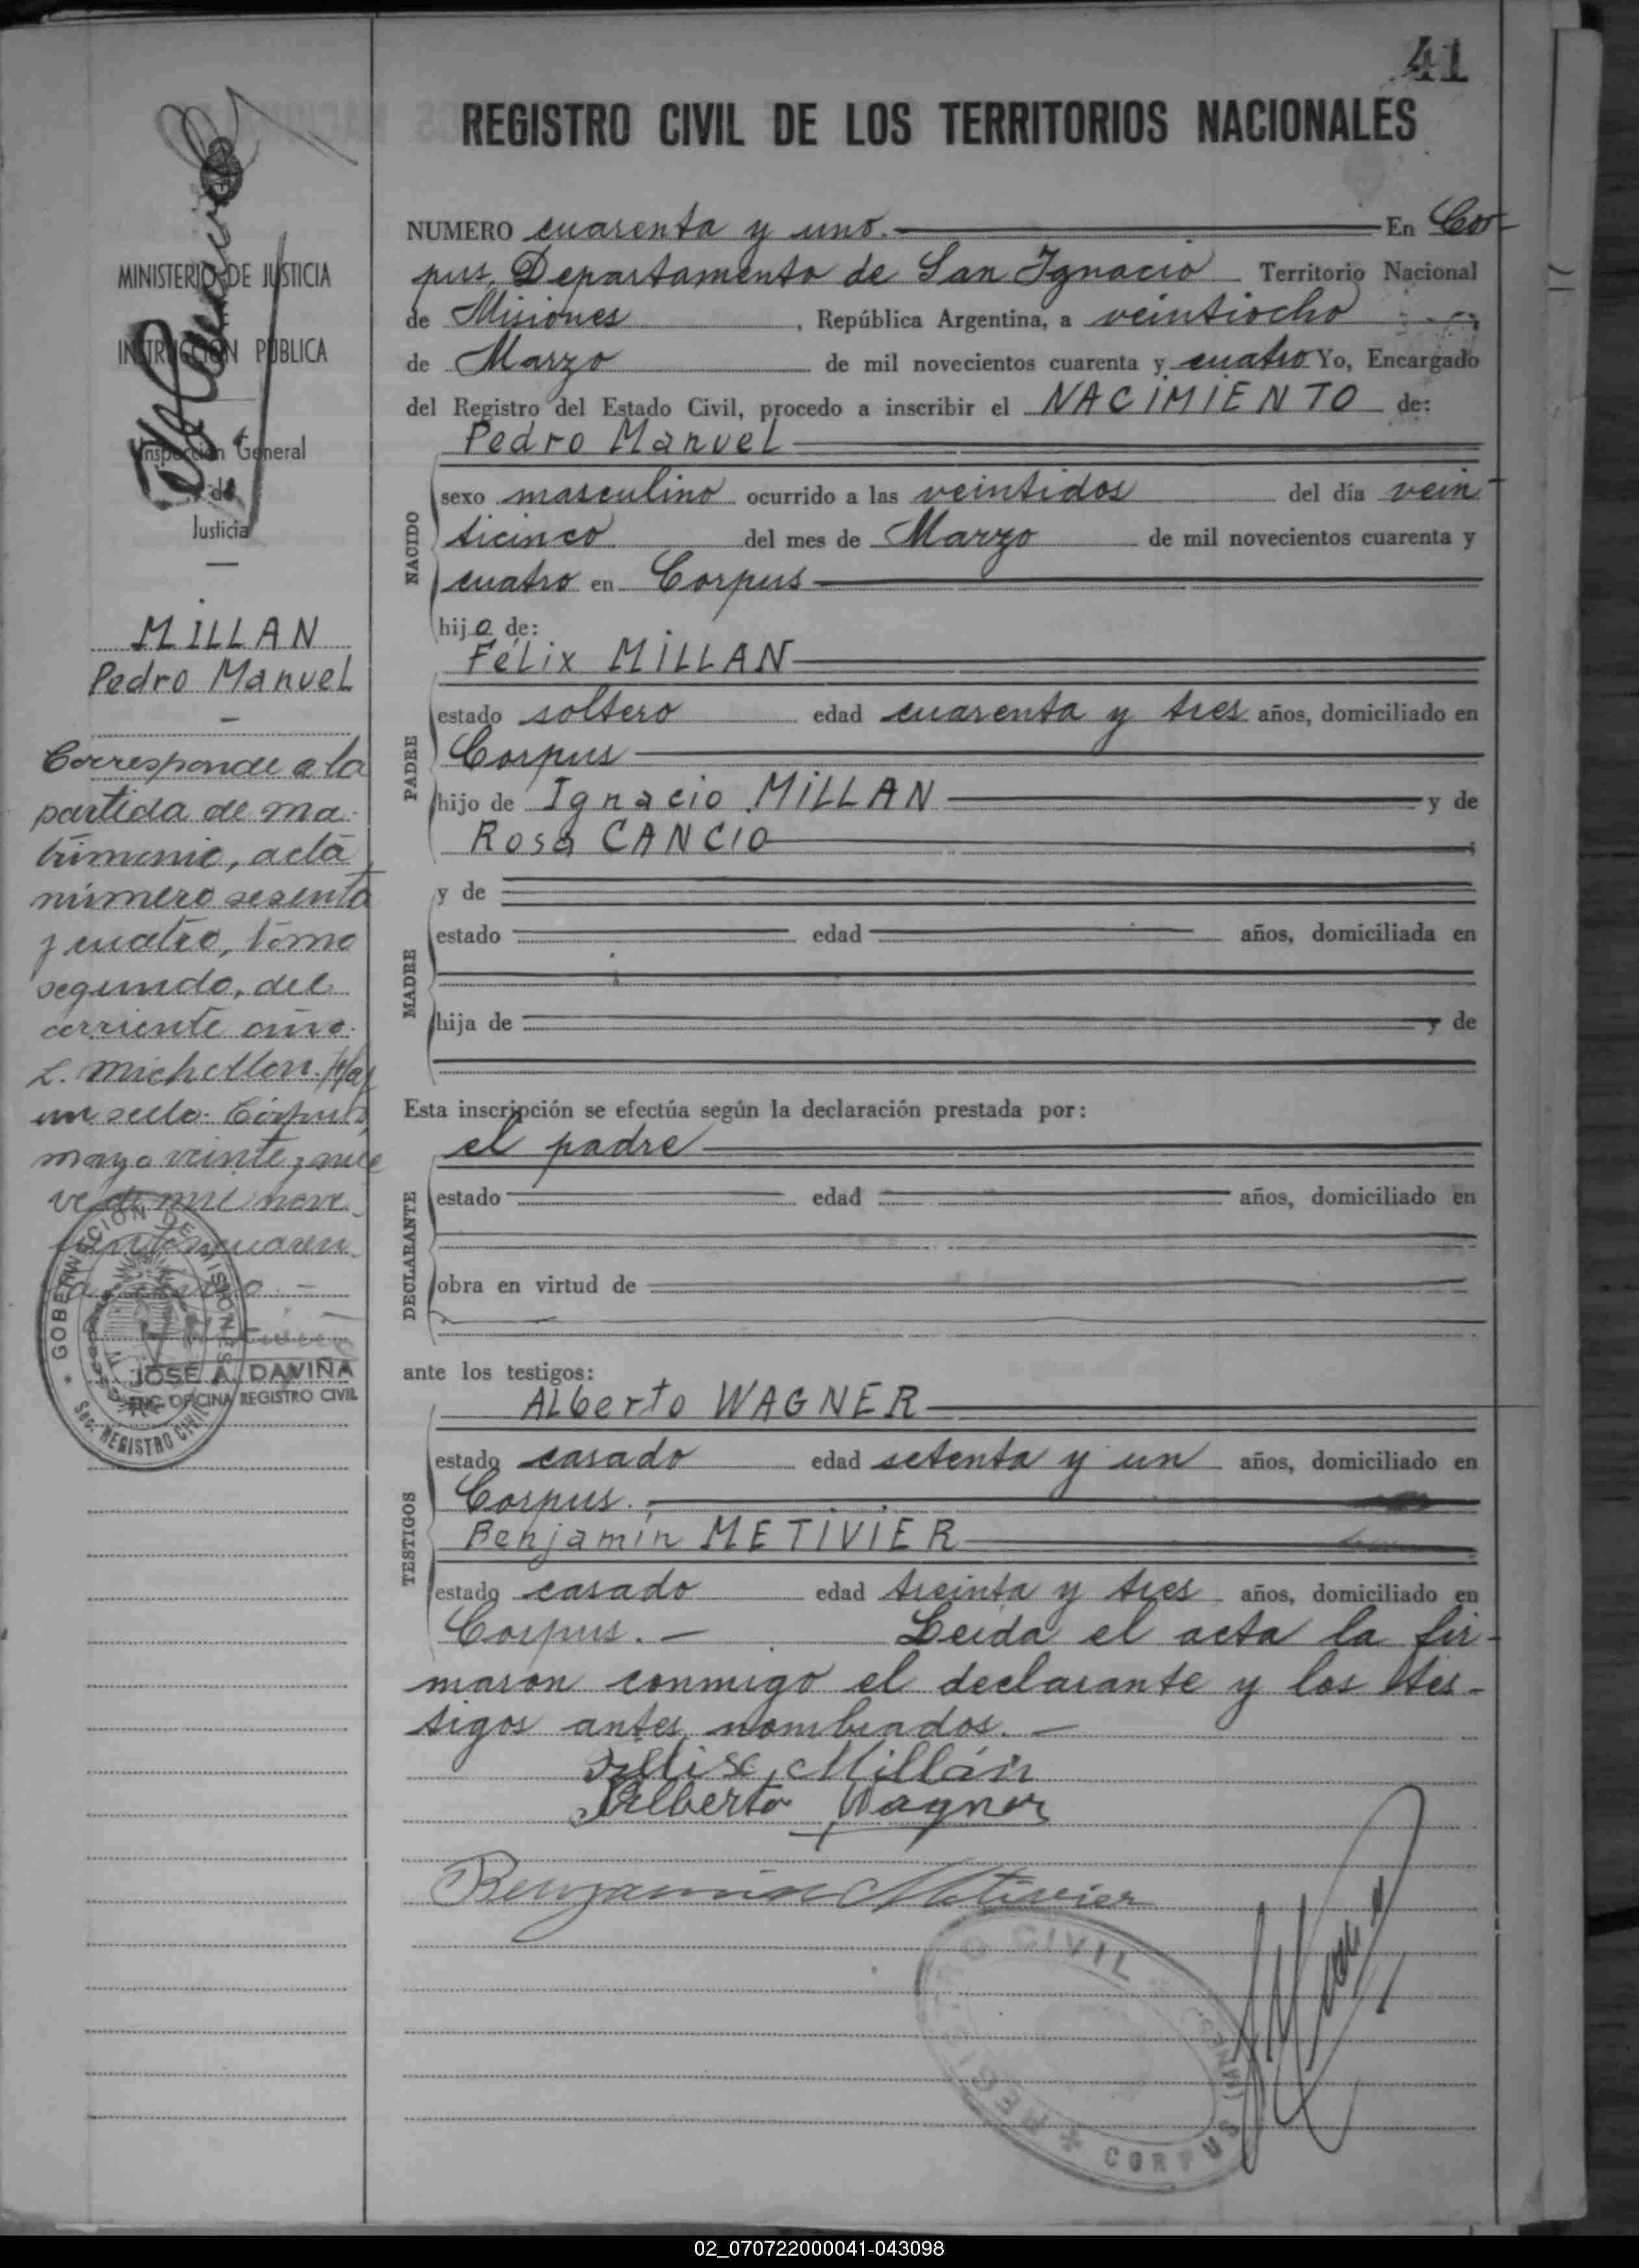 41
REGISTRO CIVIL DE LOS TERRITORIOS NACIONALES
MINISTERIO DE JUSTICIA
INSTRUCCION PUBLICA
Inspección General
de
Justicia
MILLAN
Pedro Manuel
Corresponde a la
partida de ma-
trimonio, acta
número sesenta
y cuatro, tomo
segundo, del
corriente año.
L. Michellon. Hay
un sello. Corpus,
mayo veinte y nue
ve de mil nove-
cientos cuaren-
GOBERNACION DE MISIONES
Sec. REGISTRO CIVIL
JOSE A. DAVIÑA
ENC. OFICINA REGISTRO CIVIL
NUMERO cuarenta y uno. En Cor-
pus, Departamento de San Ignacio Territorio Nacional
de Misiones, República Argentina, a veintiocho
de Marzo de mil novecientos cuarenta y cuatro Yo, Encargado
del Registro del Estado Civil, procedo a inscribir el NACIMIENTO de:
Pedro Manuel
NACIDO
sexo masculino ocurrido a las veintidos del día vein-
ticinco del mes de Marzo de mil novecientos cuarenta y
cuatro en Corpus
hijo de:
Félix MILLAN
PADRE
estado soltero edad cuarenta y tres años, domiciliado en
Corpus
hijo de Ignacio MILLAN y de
Rosa CANCIO
MADRE
y de
estado edad años, domiciliada en
hija de y de
Esta inscripción se efectúa según la declaración prestada por:
el padre
DECLARANTE
estado edad años, domiciliado en
obra en virtud de
ante los testigos:
Alberto WAGNER
TESTIGOS
estado casado edad setenta y un años, domiciliado en
Corpus.
Benjamín METIVIER
estado casado edad treinta y tres años, domiciliado en
Corpus. Leída el acta la fir-
maron conmigo el declarante y los tes-
tigos antes nombrados.
Félix Millán
Alberto Wagner
Benjamin Metivier
REGISTRO CIVIL * CORPUS (MNES.) *
02_070722000041-043098